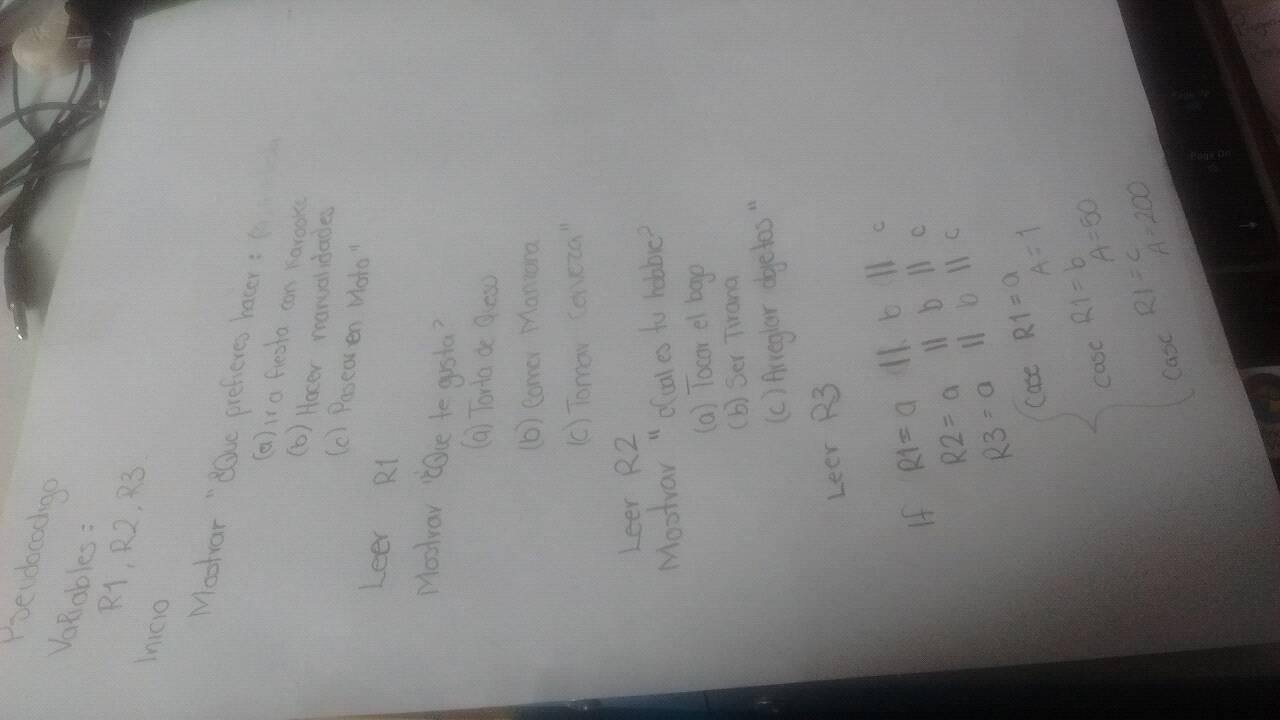 Pseudocodigo
Variables:
R1, R2, R3
Inicio
Mostrar "¿Que prefieres hacer:
(a) ir a fiesta con karaoke
(b) Hacer manualidades
(c) Pasear en Moto"
Leer R1
Mostrar "¿Que te gusta?
(a) Torta de Queso
(b) Comer Manzana
(c) Tomar Cerveza"
Leer R2
Mostrar "¿Cual es tu hobbie?
(a) Tocar el bajo
(b) Ser Tirana
(c) Arreglar objetos"
Leer R3
If R1= a || b || c
R2 = a || b || c
R3 = a || b || c
Case R1 = a
A = 1
Case R1 = b
A = 50
Case R1 = c
A = 200
Page Up
Page Dn